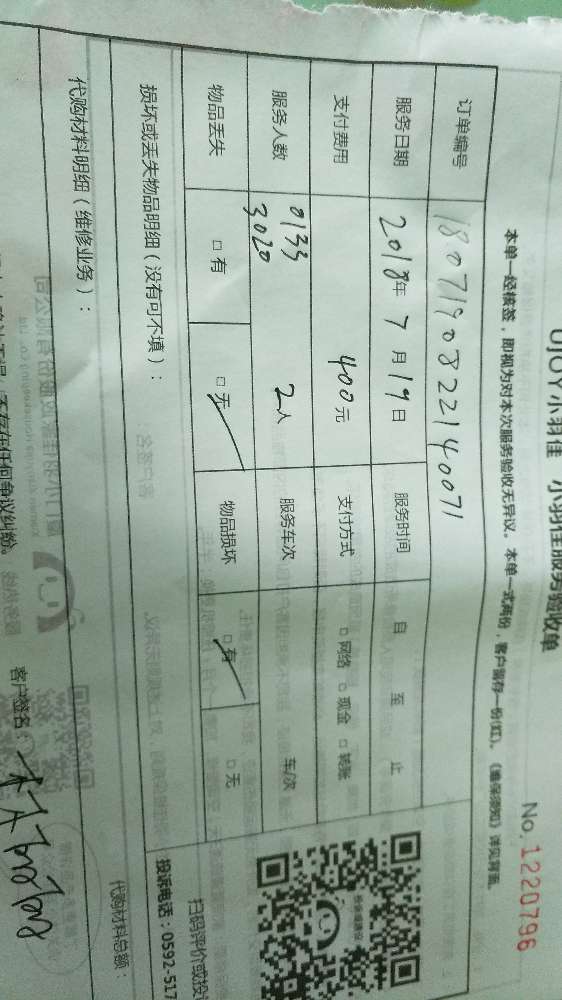 UJOY小羽佳 小羽佳服务验收单
No.1220796
本单一经核签，即视为对本次服务验收无异议。本单一式两份，客户留存一份(红)。《维保须知》详见背面。
订单编号 1807190822140071
服务日期 2018年7月19日 服务时间 自 至 止
支付费用 400元 支付方式 □网络 □现金 □转账
服务人数 0133 3020 2人 服务车次 车/次
物品丢失 □有 □无 物品损坏 □有 □无
扫码评价或投
损坏或丢失物品明细（没有可不填）：
投诉电话：0592-517
代购材料明细（维修业务）：
代购材料总额：
存在任何争议纠纷。 客户签名：